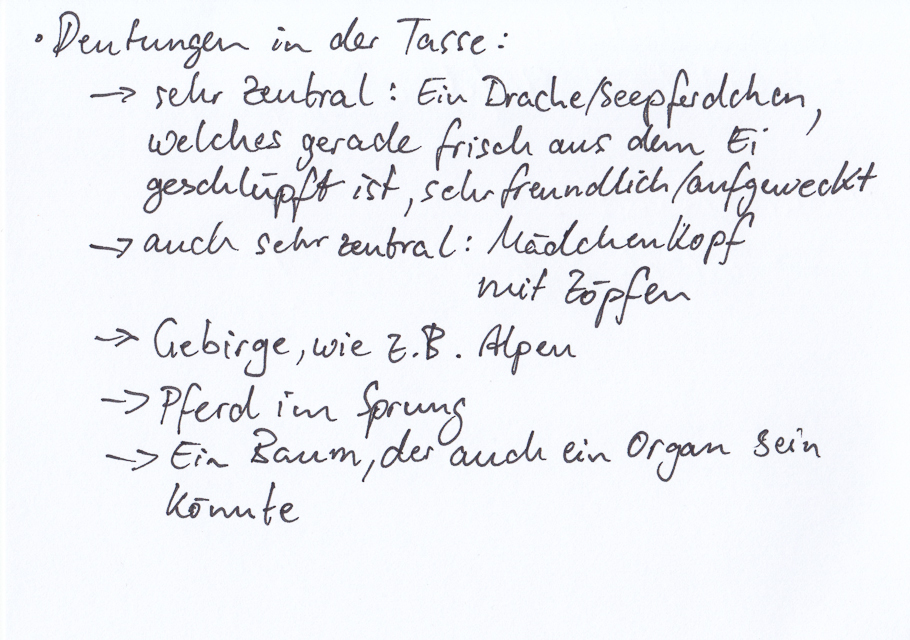 • Deutungen in der Tasse:
→ sehr zentral: Ein Drache/Seepferdchen,
welches gerade frisch aus dem Ei
geschlüpft ist, sehr freundlich/aufgeweckt
→ auch sehr zentral: Mädchenkopf
mit Zöpfen
→ Gebirge, wie z.B. Alpen
→ Pferd im Sprung
→ Ein Baum, der auch ein Organ sein
könnte